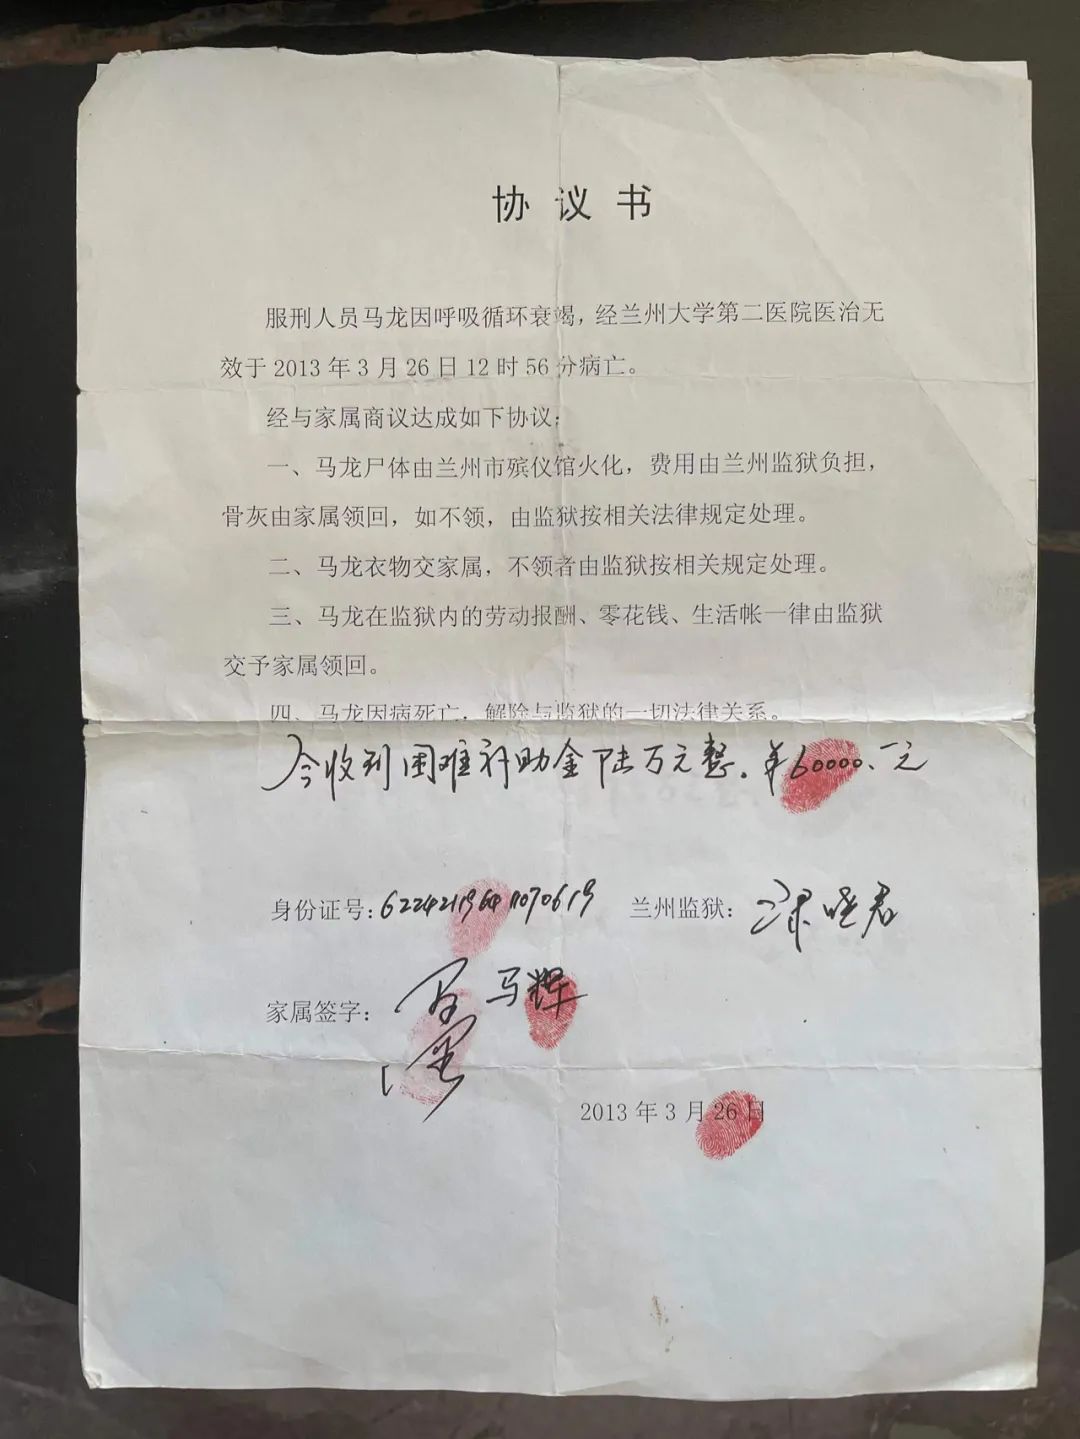 协议书
服刑人员马龙因呼吸循环衰竭，经兰州大学第二医院医治无
效于 2013 年 3 月 26 日 12 时 56 分病亡。
经与家属商议达成如下协议：
一、马龙尸体由兰州市殡仪馆火化，费用由兰州监狱负担，
骨灰由家属领回，如不领，由监狱按相关法律规定处理。
二、马龙衣物交家属，不领者由监狱按相关规定处理。
三、马龙在监狱内的劳动报酬、零花钱、生活帐一律由监狱
交予家属领回。
四、马龙因病死亡，解除与监狱的一切法律关系。
今收到困难补助金陆万元整。¥60000.一元
身份证号：622421196411070619 兰州监狱：
家属签字： 马辉
2013 年 3 月 26 日